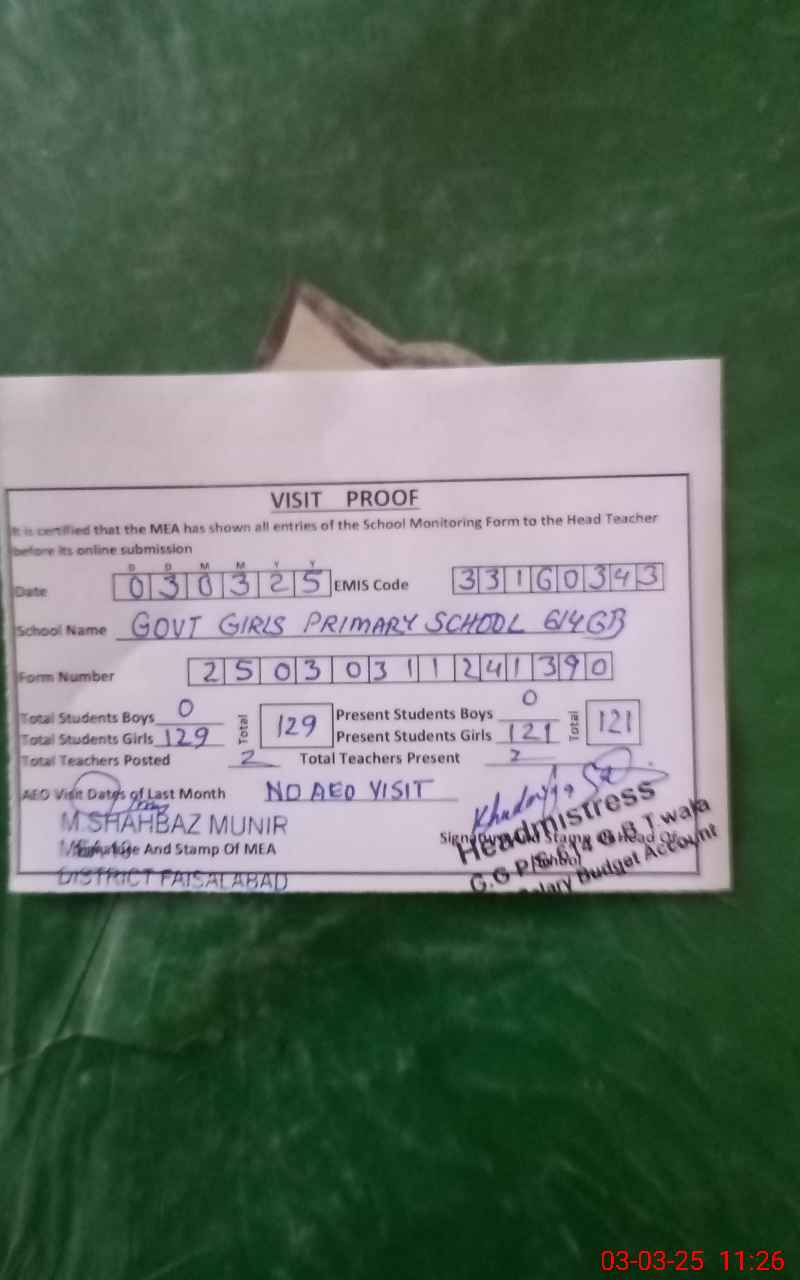 VISIT PROOF
It is certified that the MEA has shown all entries of the School Monitoring Form to the Head Teacher
before its online submission
D D M M Y Y
Date 030325 EMIS Code 33160343
School Name GOVT GIRLS PRIMARY SCHOOL 614GB
Form Number 25030311241390
Total Students Boys 0 Total 129 Present Students Boys 0 Total 121
Total Students Girls 129 Present Students Girls 121
Total Teachers Posted 2 Total Teachers Present 2
AEO Visit Dates of Last Month NO AEO VISIT
M.SHAHBAZ MUNIR
And Stamp Of MEA
DISTRICT FAISALABAD
Headmistress
G.G.P/S 614 G.B.T wala
Salary Budget Account
03-03-25 11:26